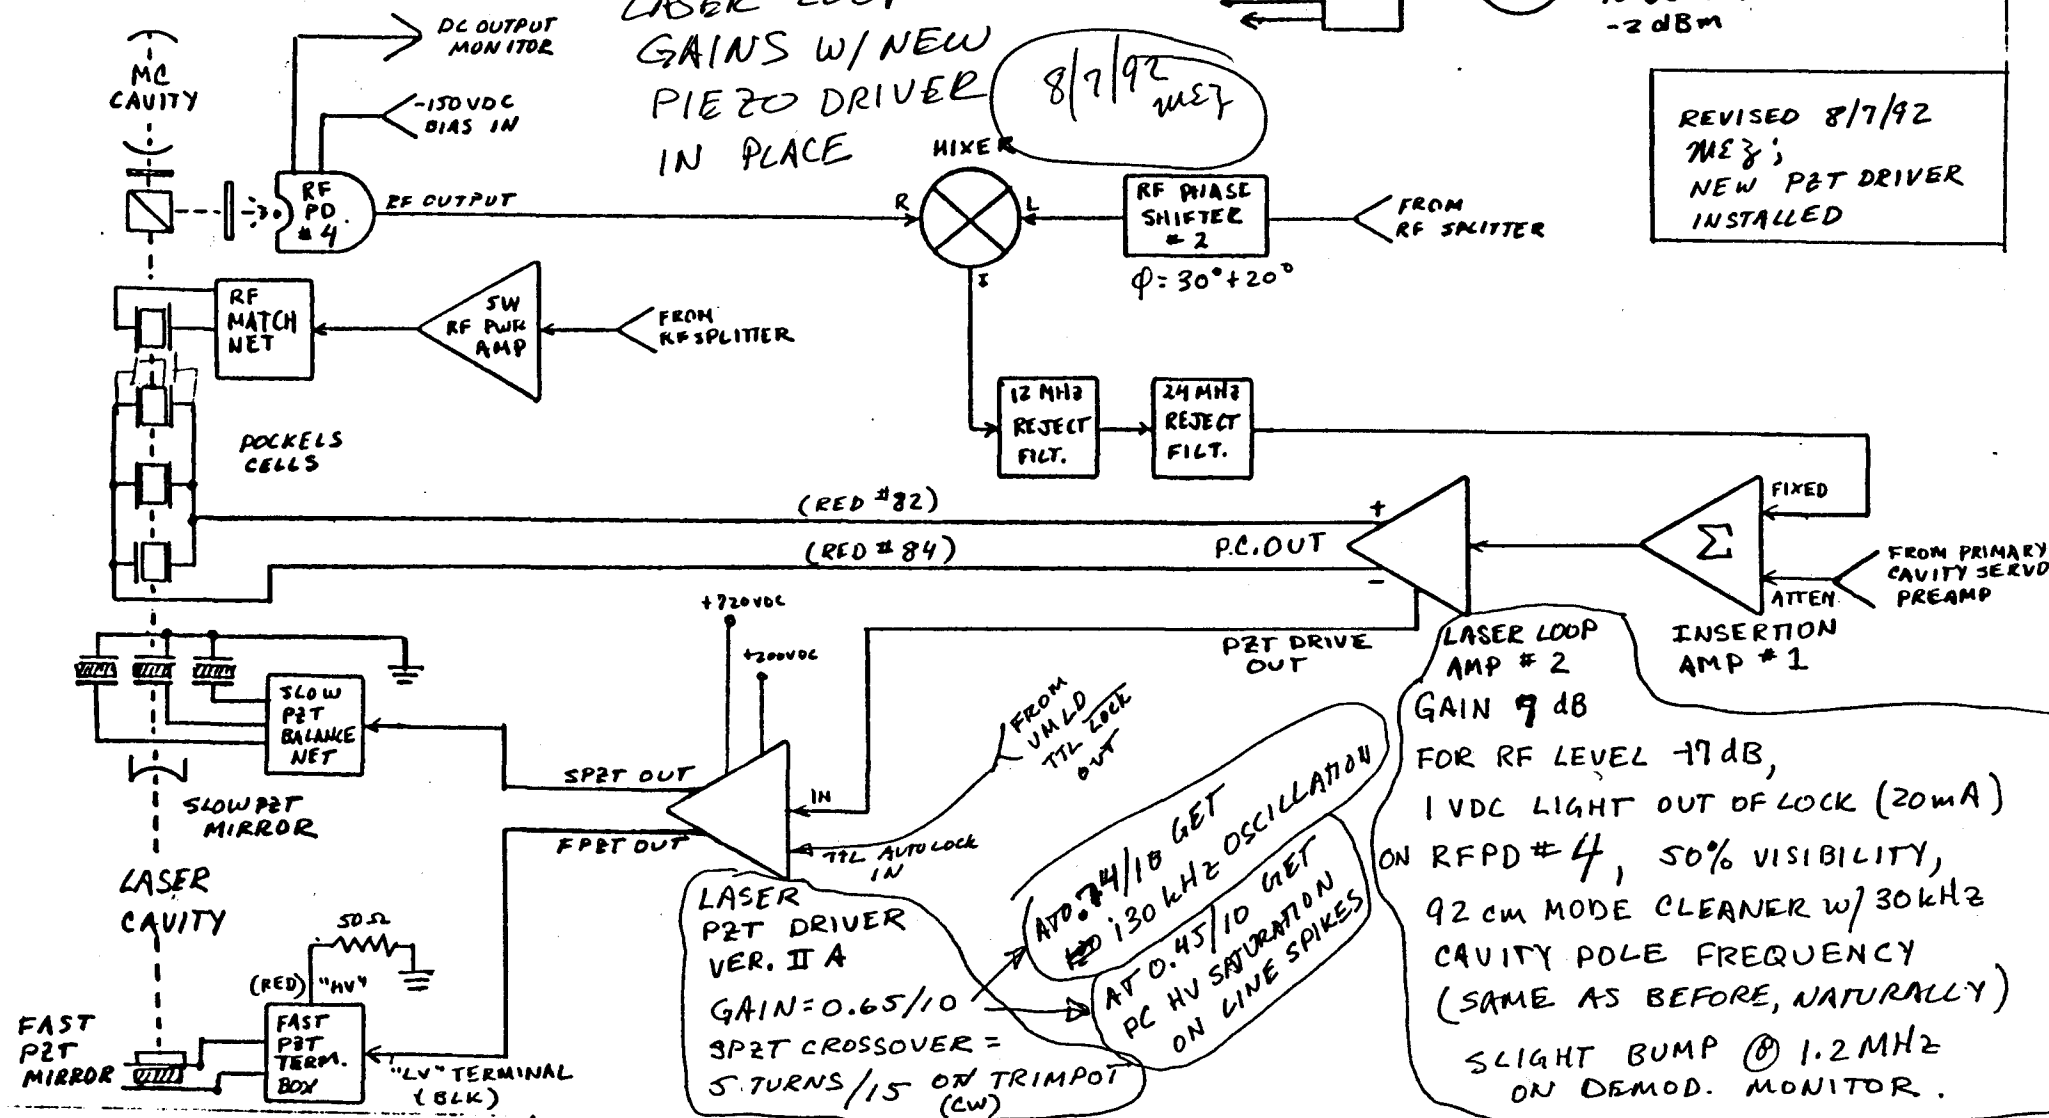 GAINS W/ NEW
PIEZO DRIVER
IN PLACE
8/7/92
MEZ
-2 dBm
REVISED 8/7/92
MEZ;
NEW PZT DRIVER
INSTALLED
DC OUTPUT
MONITOR
-150VDC
BIAS IN
MC
CAVITY
RF
PD.
#4
RF OUTPUT
MIXER
R
L
I
RF PHASE
SHIFTER
#2
φ=30°+20°
FROM
RF SPLITTER
RF
MATCH
NET
5W
RF PWR
AMP
FROM
RF SPLITTER
POCKELS
CELLS
12 MHz
REJECT
FILT.
24 MHz
REJECT
FILT.
(RED #82)
(RED #84)
P.C. OUT
+
-
Σ
FIXED
ATTEN.
FROM PRIMARY
CAVITY SERVO
PREAMP
INSERTION
AMP #1
LASER LOOP
AMP #2
GAIN 9 dB
FOR RF LEVEL -17 dB,
1 VDC LIGHT OUT OF LOCK (20mA)
ON RFPD #4, 50% VISIBILITY,
92 cm MODE CLEANER W/ 30 kHz
CAVITY POLE FREQUENCY
(SAME AS BEFORE, NATURALLY)
SLIGHT BUMP @ 1.2 MHz
ON DEMOD. MONITOR.
PZT DRIVE
OUT
+720VDC
+200VDC
FROM
VMLD
TTL LOCK
OUT
SLOW
PZT
BALANCE
NET
SLOW PZT
MIRROR
SPZT OUT
FPZT OUT
IN
TTL AUTOLOCK
IN
LASER
CAVITY
50Ω
(RED) "HV"
FAST
PZT
TERM.
BOX
FAST
PZT
MIRROR
"LV" TERMINAL
(BLK)
LASER
PZT DRIVER
VER. II A
GAIN = 0.65/10
SPZT CROSSOVER =
5 TURNS/15 ON TRIMPOT
(CW)
GET
130 kHz OSCILLATION
AT 0.45/10 GET
PC HV SATURATION
ON LINE SPIKES